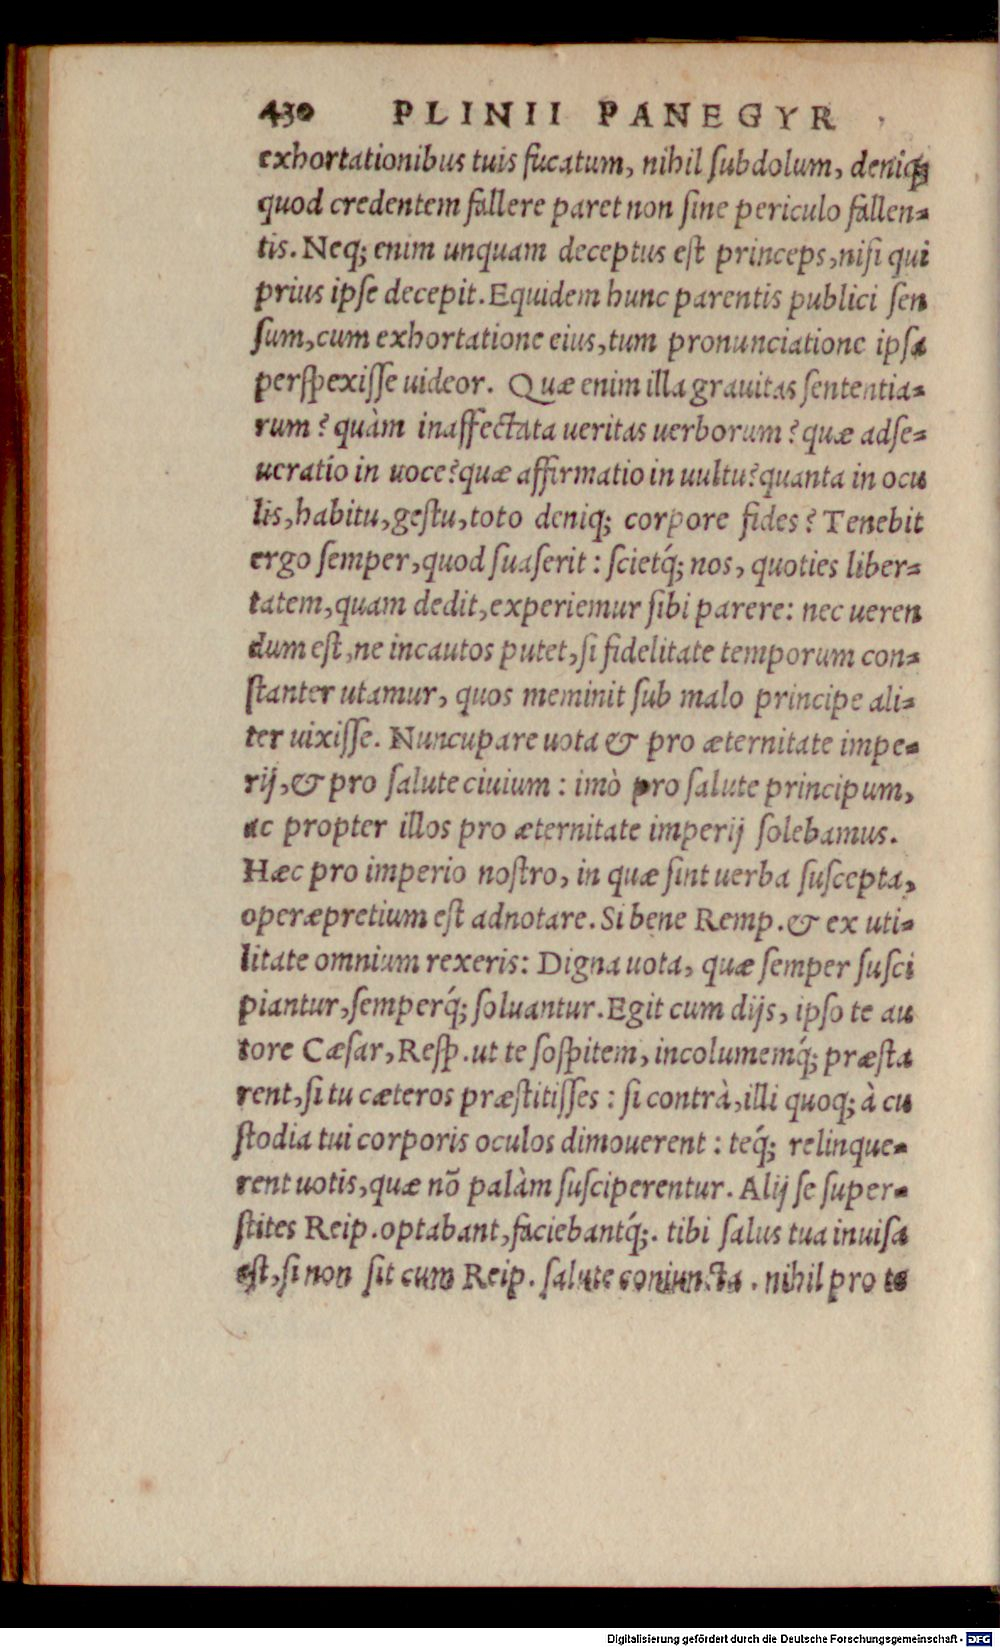 430 PLINII PANEGYR
exhortationibus tuis fucatum, nihil ſubdolum, deniq;
quod credentem fallere paret non ſine periculo fallen-
tis. Neq; enim unquam deceptus eſt princeps, niſi qui
prius ipſe decepit. Equidem hunc parentis publici ſen
ſum, cum exhortatione eius, tum pronunciatione ipſa
perſpexiſſe uideor. Quæ enim illa grauitas ſententia-
rum? quàm inaffectata ueritas uerborum? quæ adſe-
ueratio in uoce? quæ affirmatio in uultu? quanta in ocu
lis, habitu, geſtu, toto deniq; corpore fides? Tenebit
ergo ſemper, quod ſuaſerit: ſcietq́; nos, quoties liber-
tatem, quam dedit, experiemur ſibi parere: nec ueren
dum eſt, ne incautos putet, ſi fidelitate temporum con-
ſtanter utamur, quos meminit ſub malo principe ali-
ter uixiſſe. Nuncupare uota & pro æternitate impe-
rij, & pro ſalute ciuium: imò pro ſalute principum,
ac propter illos pro æternitate imperij ſolebamus.
Hæc pro imperio noſtro, in quæ ſint uerba ſuſcepta,
operæpretium eſt adnotare. Si bene Remp. & ex uti-
litate omnium rexeris: Digna uota, quæ ſemper ſuſci
piantur, ſemperq́; ſoluantur. Egit cum dijs, ipſo te au
tore Cæſar, Reſp. ut te ſoſpitem, incolumemq́; præſta
rent, ſi tu cæteros præſtitiſſes: ſi contrà, illi quoq; à cu
ſtodia tui corporis oculos dimouerent: teq́; relinque-
rent uotis, quæ nõ palàm ſuſciperentur. Alij ſe ſuper-
ſtites Reip. optabant, faciebantq́;. tibi ſalus tua inuiſa
eſt, ſi non ſit cum Reip. ſalute coniuncta. nihil pro te
Digitalisierung gefördert durch die Deutsche Forschungsgemeinschaft - DFG